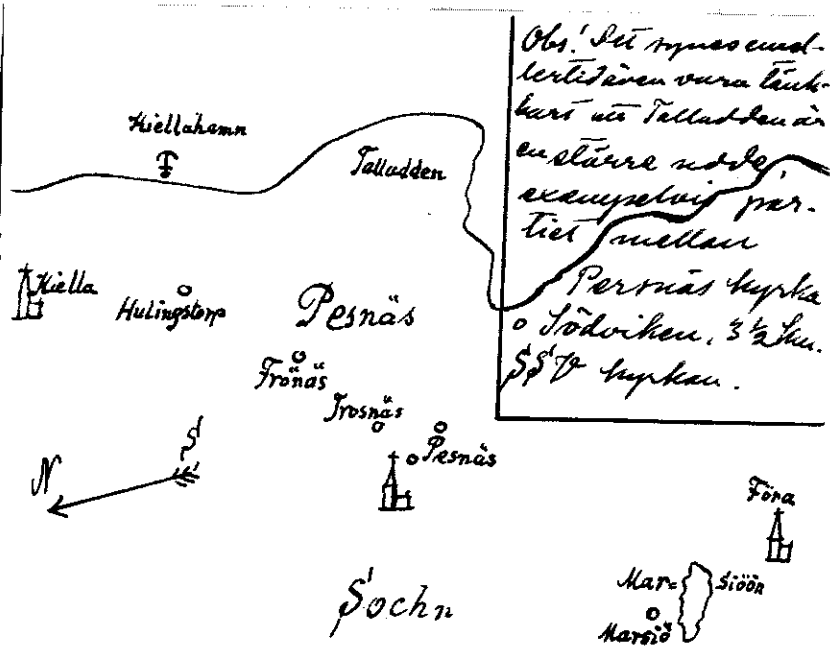 Obs! Det synes emel-
lertid även vara tänk-
bart att Talludden är
en större udde
exempelvis par-
tiet mellan
Persnäs kyrka
o Södviken, 3 ½ km.
SSV kyrkan.
Kiellahamn
Talludden
Kiella
Hulingstorp
Pesnäs
Frönäs
Trosnäs
Pesnäs
N
S
Föra
Mar= Siöön
Marsiö
Sochn